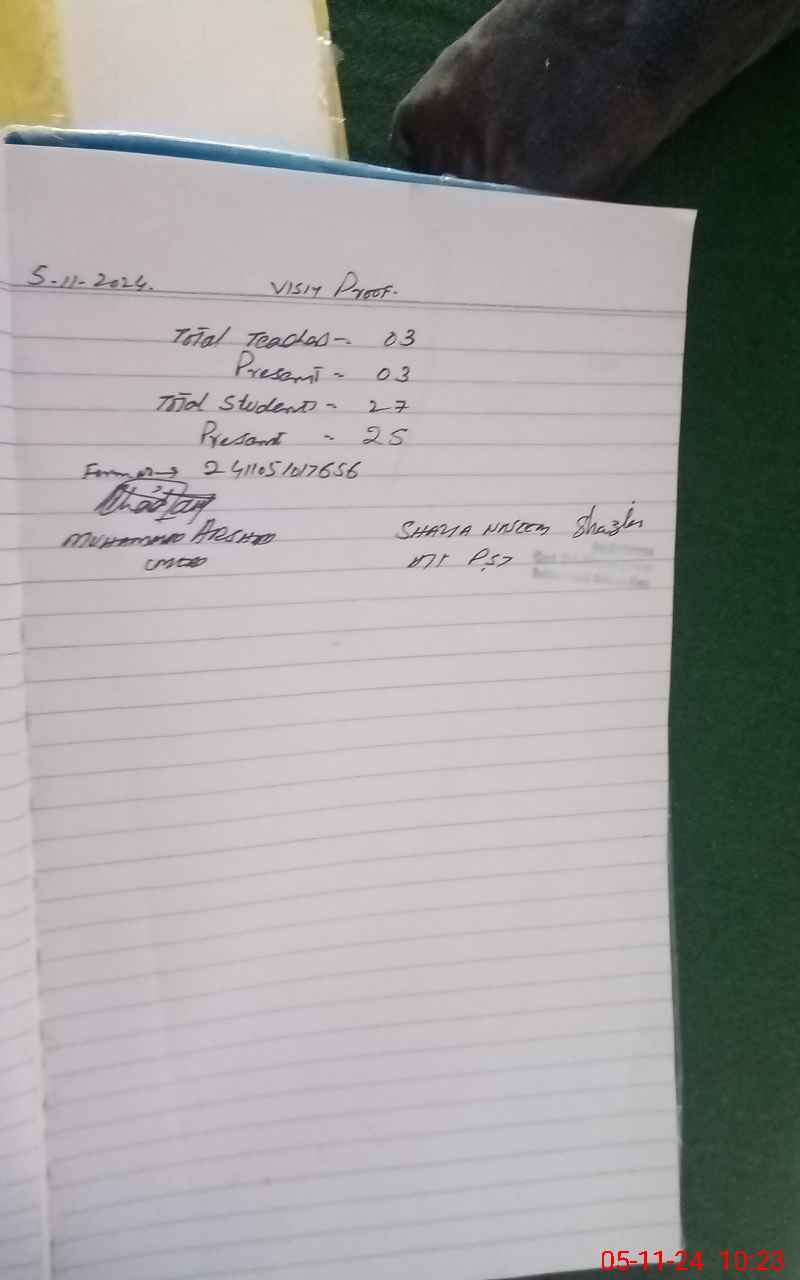 5-11-2024. VISIT Proof.
Total Teacher - 03
Present = 03
Total Students - 27
Present - 25
Form 2411051017656
MUHAMMAD ARSHAD
SHAZIA NASEEM Shazia
PST
05-11-24 10:23